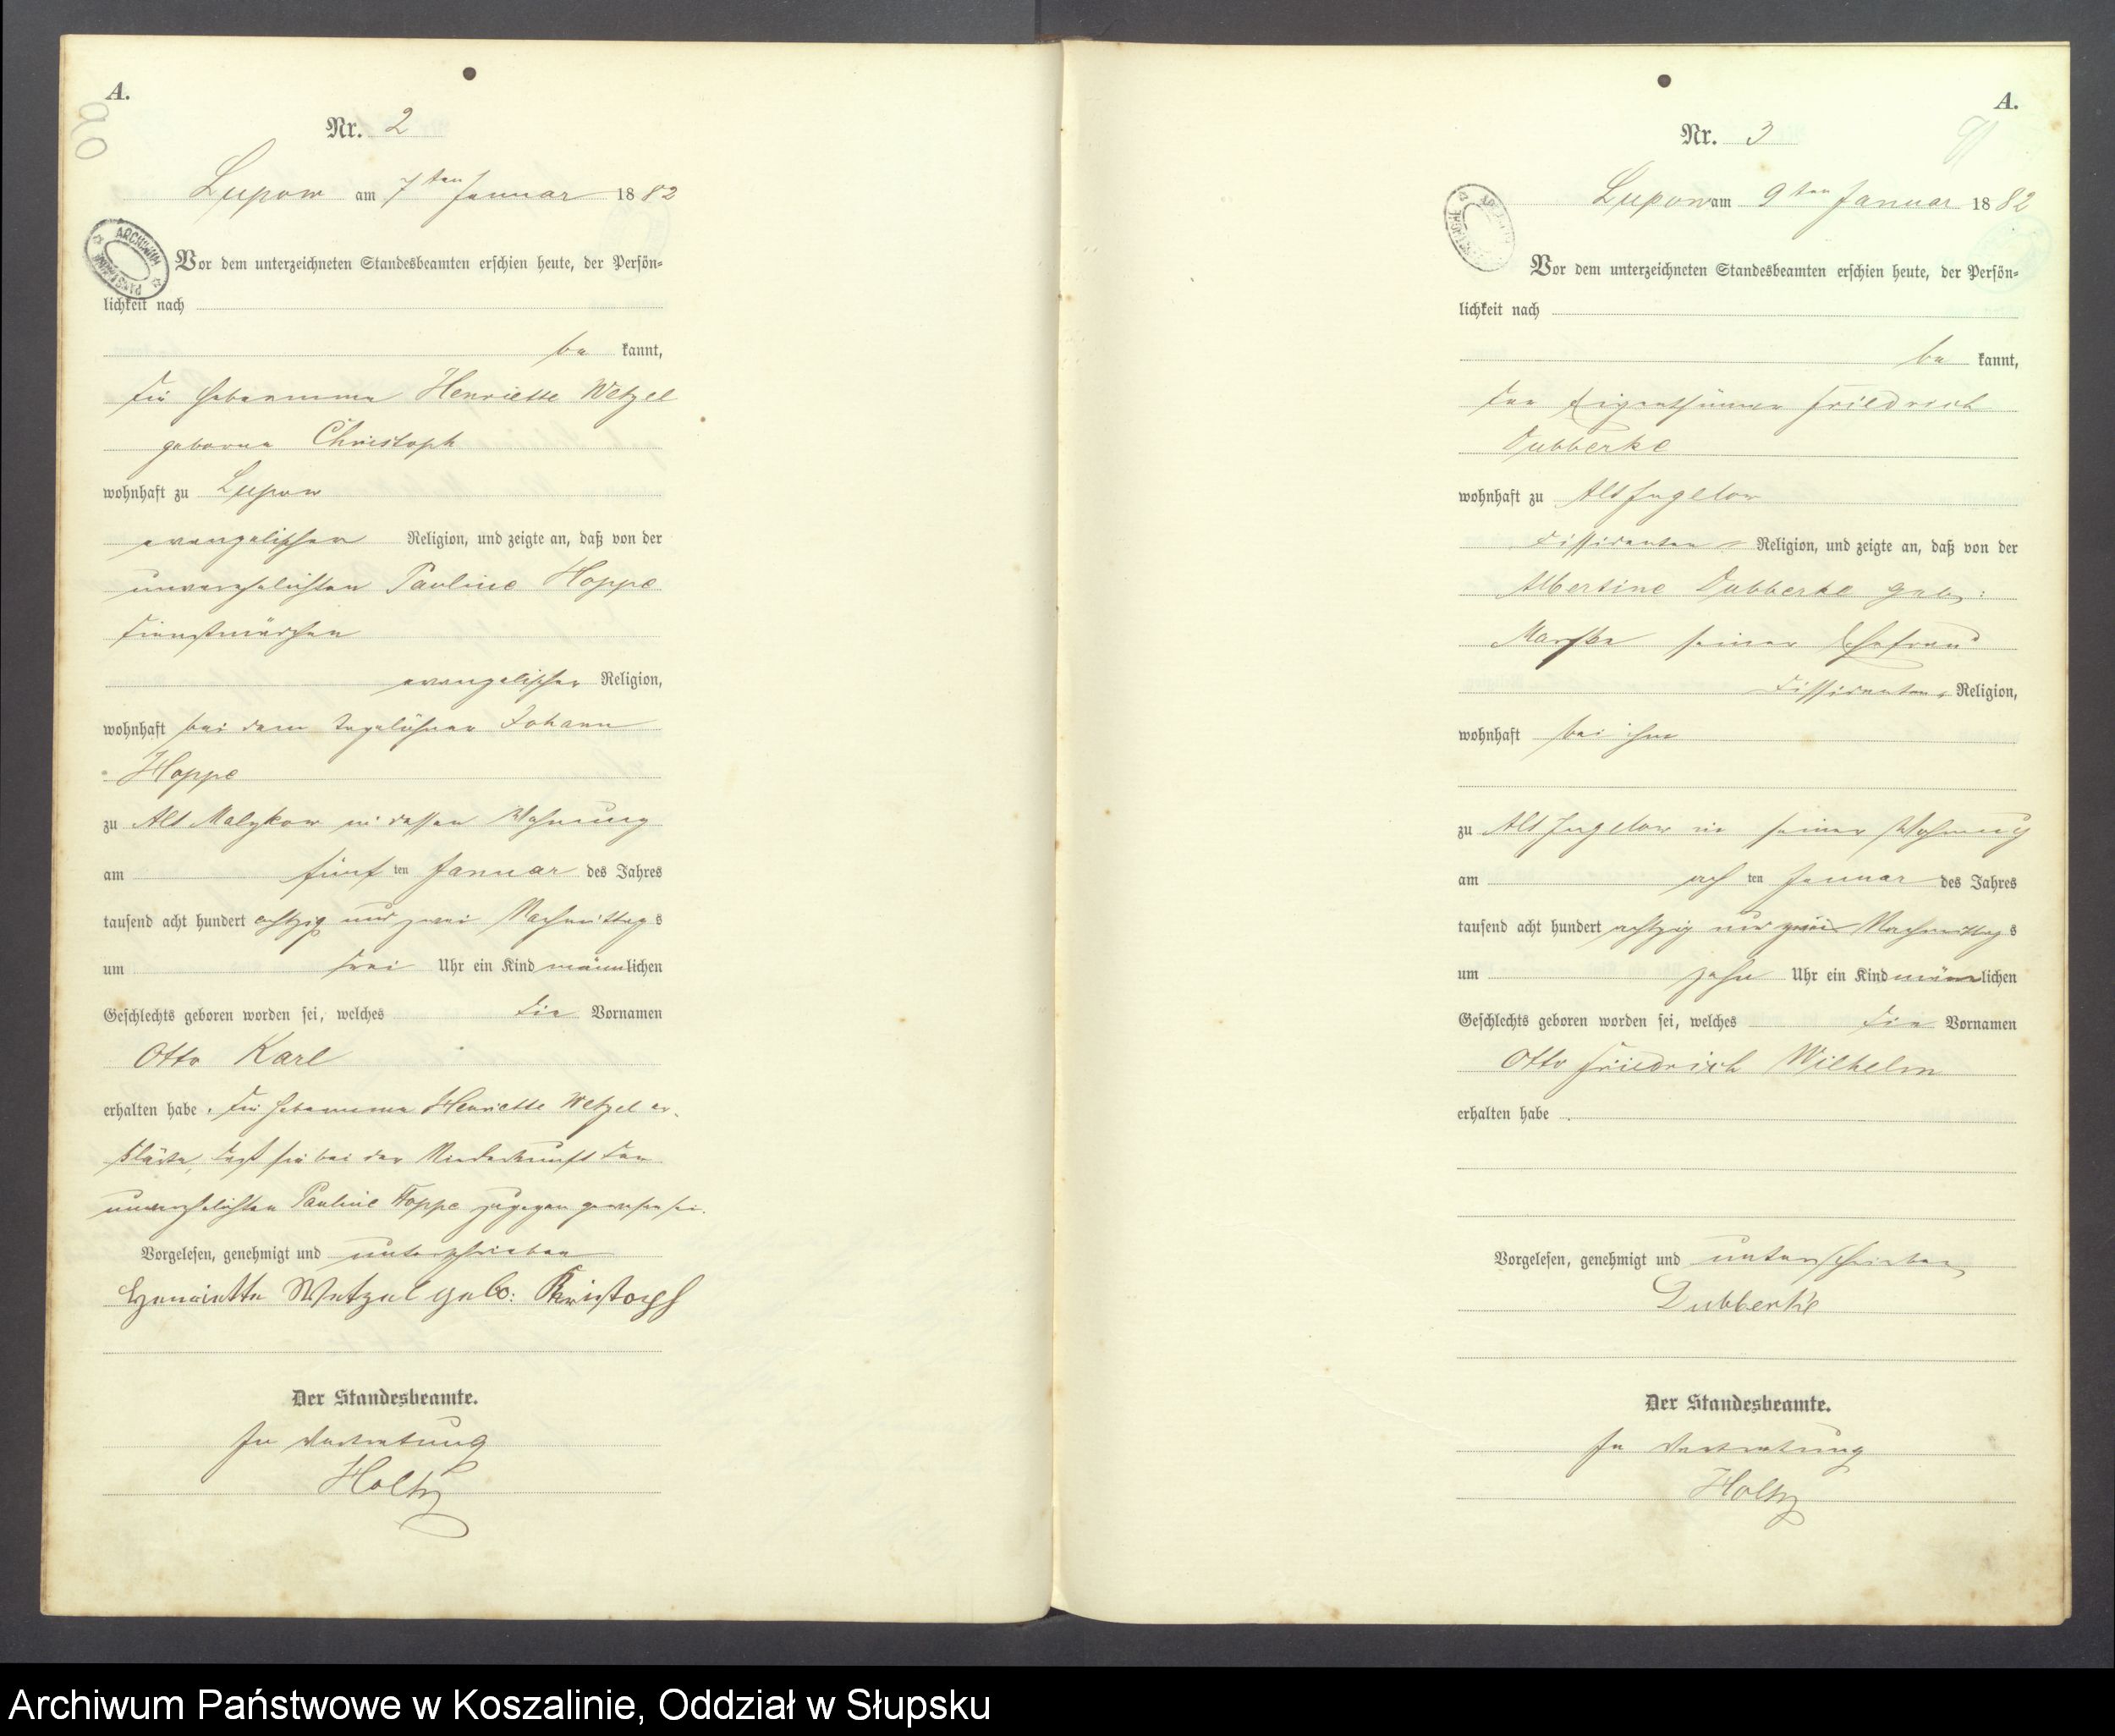 A.
90
Nr. 2
Lupow am 7ten Januar 1882
ARCHIWUM PAŃSTWOWE
Vor dem unterzeichneten Standesbeamten erschien heute, der Persön-
lichkeit nach
be kannt,
die Hebamme Henriette Wetzel
geborne Christoph
wohnhaft zu Lupow
evangelischer Religion, und zeigte an, daß von der
unverehelichten Pauline Hoppe
Dienstmädchen
evangelischer Religion,
wohnhaft bei dem Tagelöhner Johann
Hoppe
zu Alt Malzkow in dessen Wohnung
am fünf ten Januar des Jahres
tausend acht hundert achtzig und zwei Nachmittags
um drei Uhr ein Kind männlichen
Geschlechts geboren worden sei, welches die Vornamen
Otto Karl
erhalten habe. Die Hebamme Henriette Wetzel er-
klärte, daß sie bei der Niederkunft der
unverehelichten Pauline Hoppe zugegen gewesen sei.
Vorgelesen, genehmigt und unterschrieben
Henriette Wetzel geb: Christoph
Der Standesbeamte.
In Vertretung
Holtz
A.
91
Nr. 3
Lupow am 9ten Januar 1882
Vor dem unterzeichneten Standesbeamten erschien heute, der Persön-
lichkeit nach
be kannt,
der Eigenthümer Friedrich
Dubberke
wohnhaft zu Alt Jugelow
Dissidenten - Religion, und zeigte an, daß von der
Albertine Dubberke geb:
seiner Ehefrau
Dissidenten - Religion,
wohnhaft bei ihm
zu Alt Jugelow in seiner Wohnung
am ach ten Januar des Jahres
tausend acht hundert achtzig und zwei Nachmittags
um zehn Uhr ein Kind männlichen
Geschlechts geboren worden sei, welches die Vornamen
Otto Friedrich Wilhelm
erhalten habe.
Vorgelesen, genehmigt und unterschrieben
Dubberke
Der Standesbeamte.
In Vertretung
Holtz
Archiwum Państwowe w Koszalinie, Oddział w Słupsku